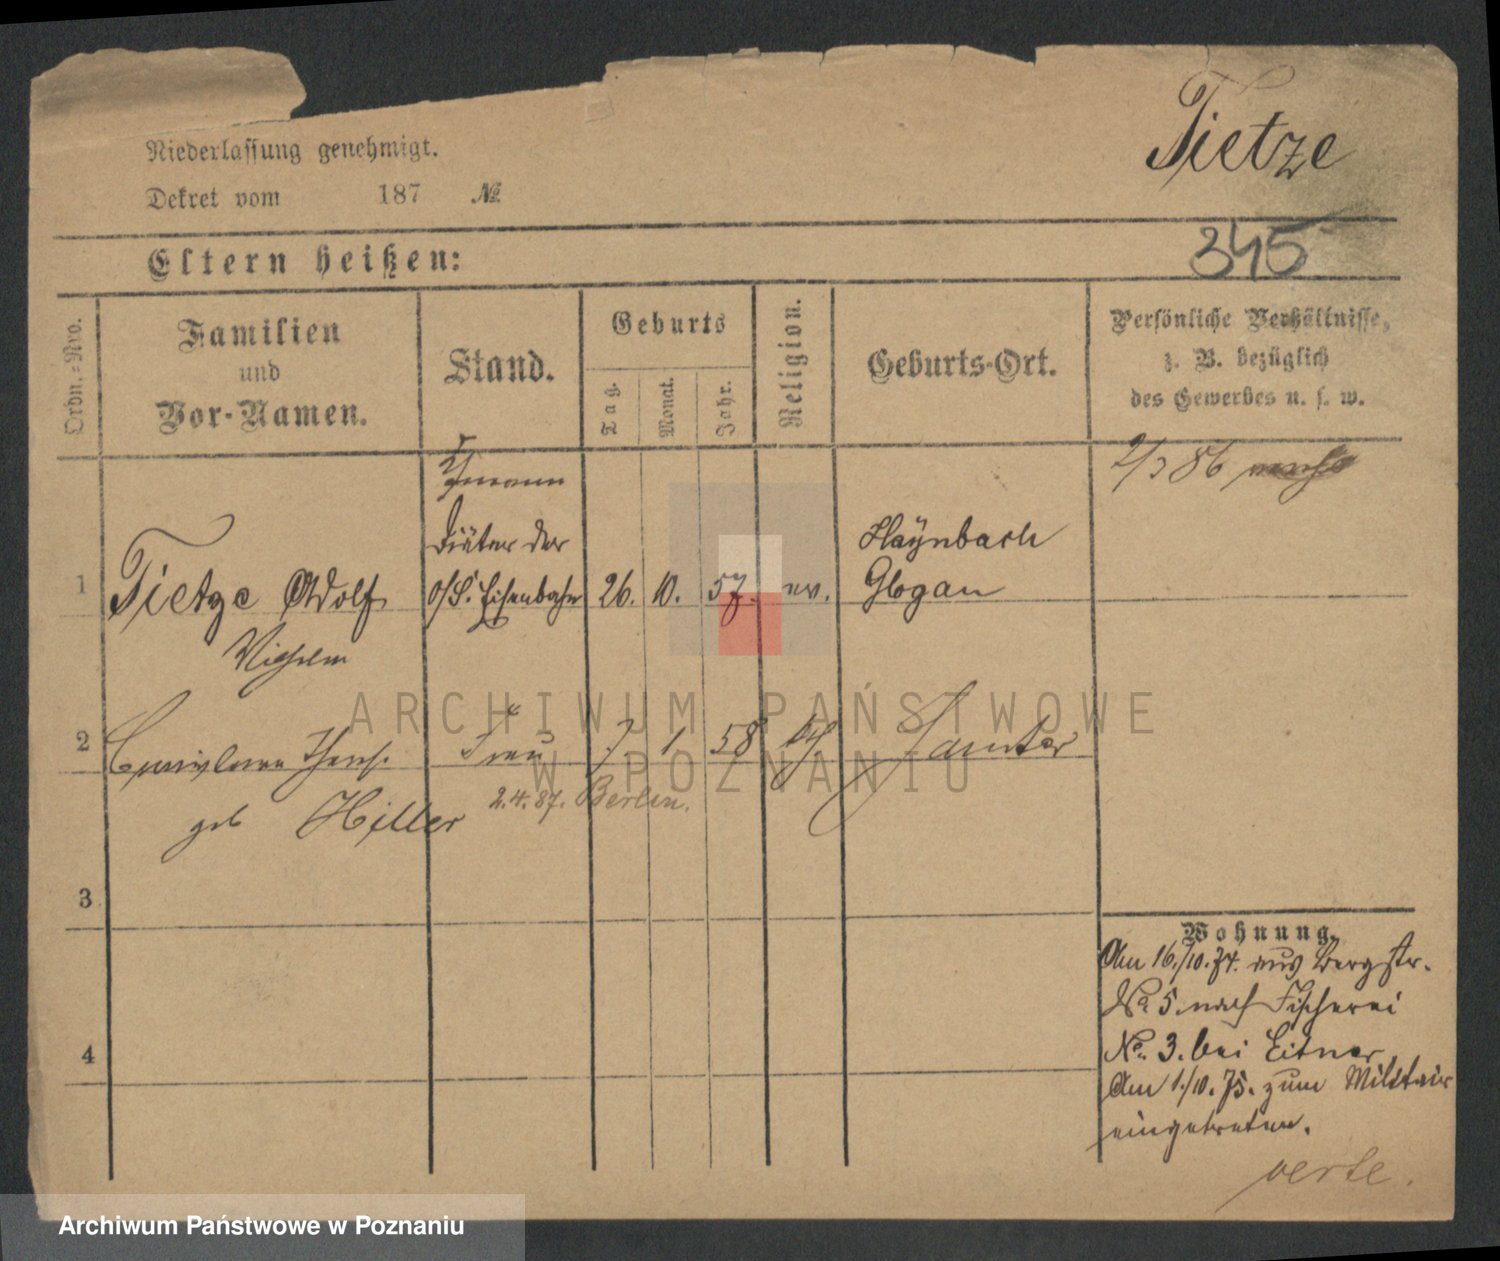 Tietze
Niederlassung genehmigt.
Dekret vom 187 №
345
Eltern heißen:
Ordn.=Nro.
Familien
und
Vor-Namen.
Stand.
Geburts
Tag.
Monat.
Jahr.
Religion.
Geburts-Ort.
Persönliche Verhältnisse,
z. B. bezüglich
des Gewerbes u. s. w.
2/3 86
Diätar der
1 Tietze Adolf O/S. Eisenbahn 26. 10. 57. ev. Haynbach
Glogau
Wilhelm
2 Frau 7. 1 58 Samter
geb Hiller
2.4.87. Berlin.
3
4
Wohnung.
Am 16./10.74. aus Bergstr.
№ 5. nach Fischerei
№ 3. bei Eitner
Am 1./10.75. zum Militair
eingetreten.
verte.
ARCHIWUM PAŃSTWOWE
W POZNANIU
Archiwum Państwowe w Poznaniu